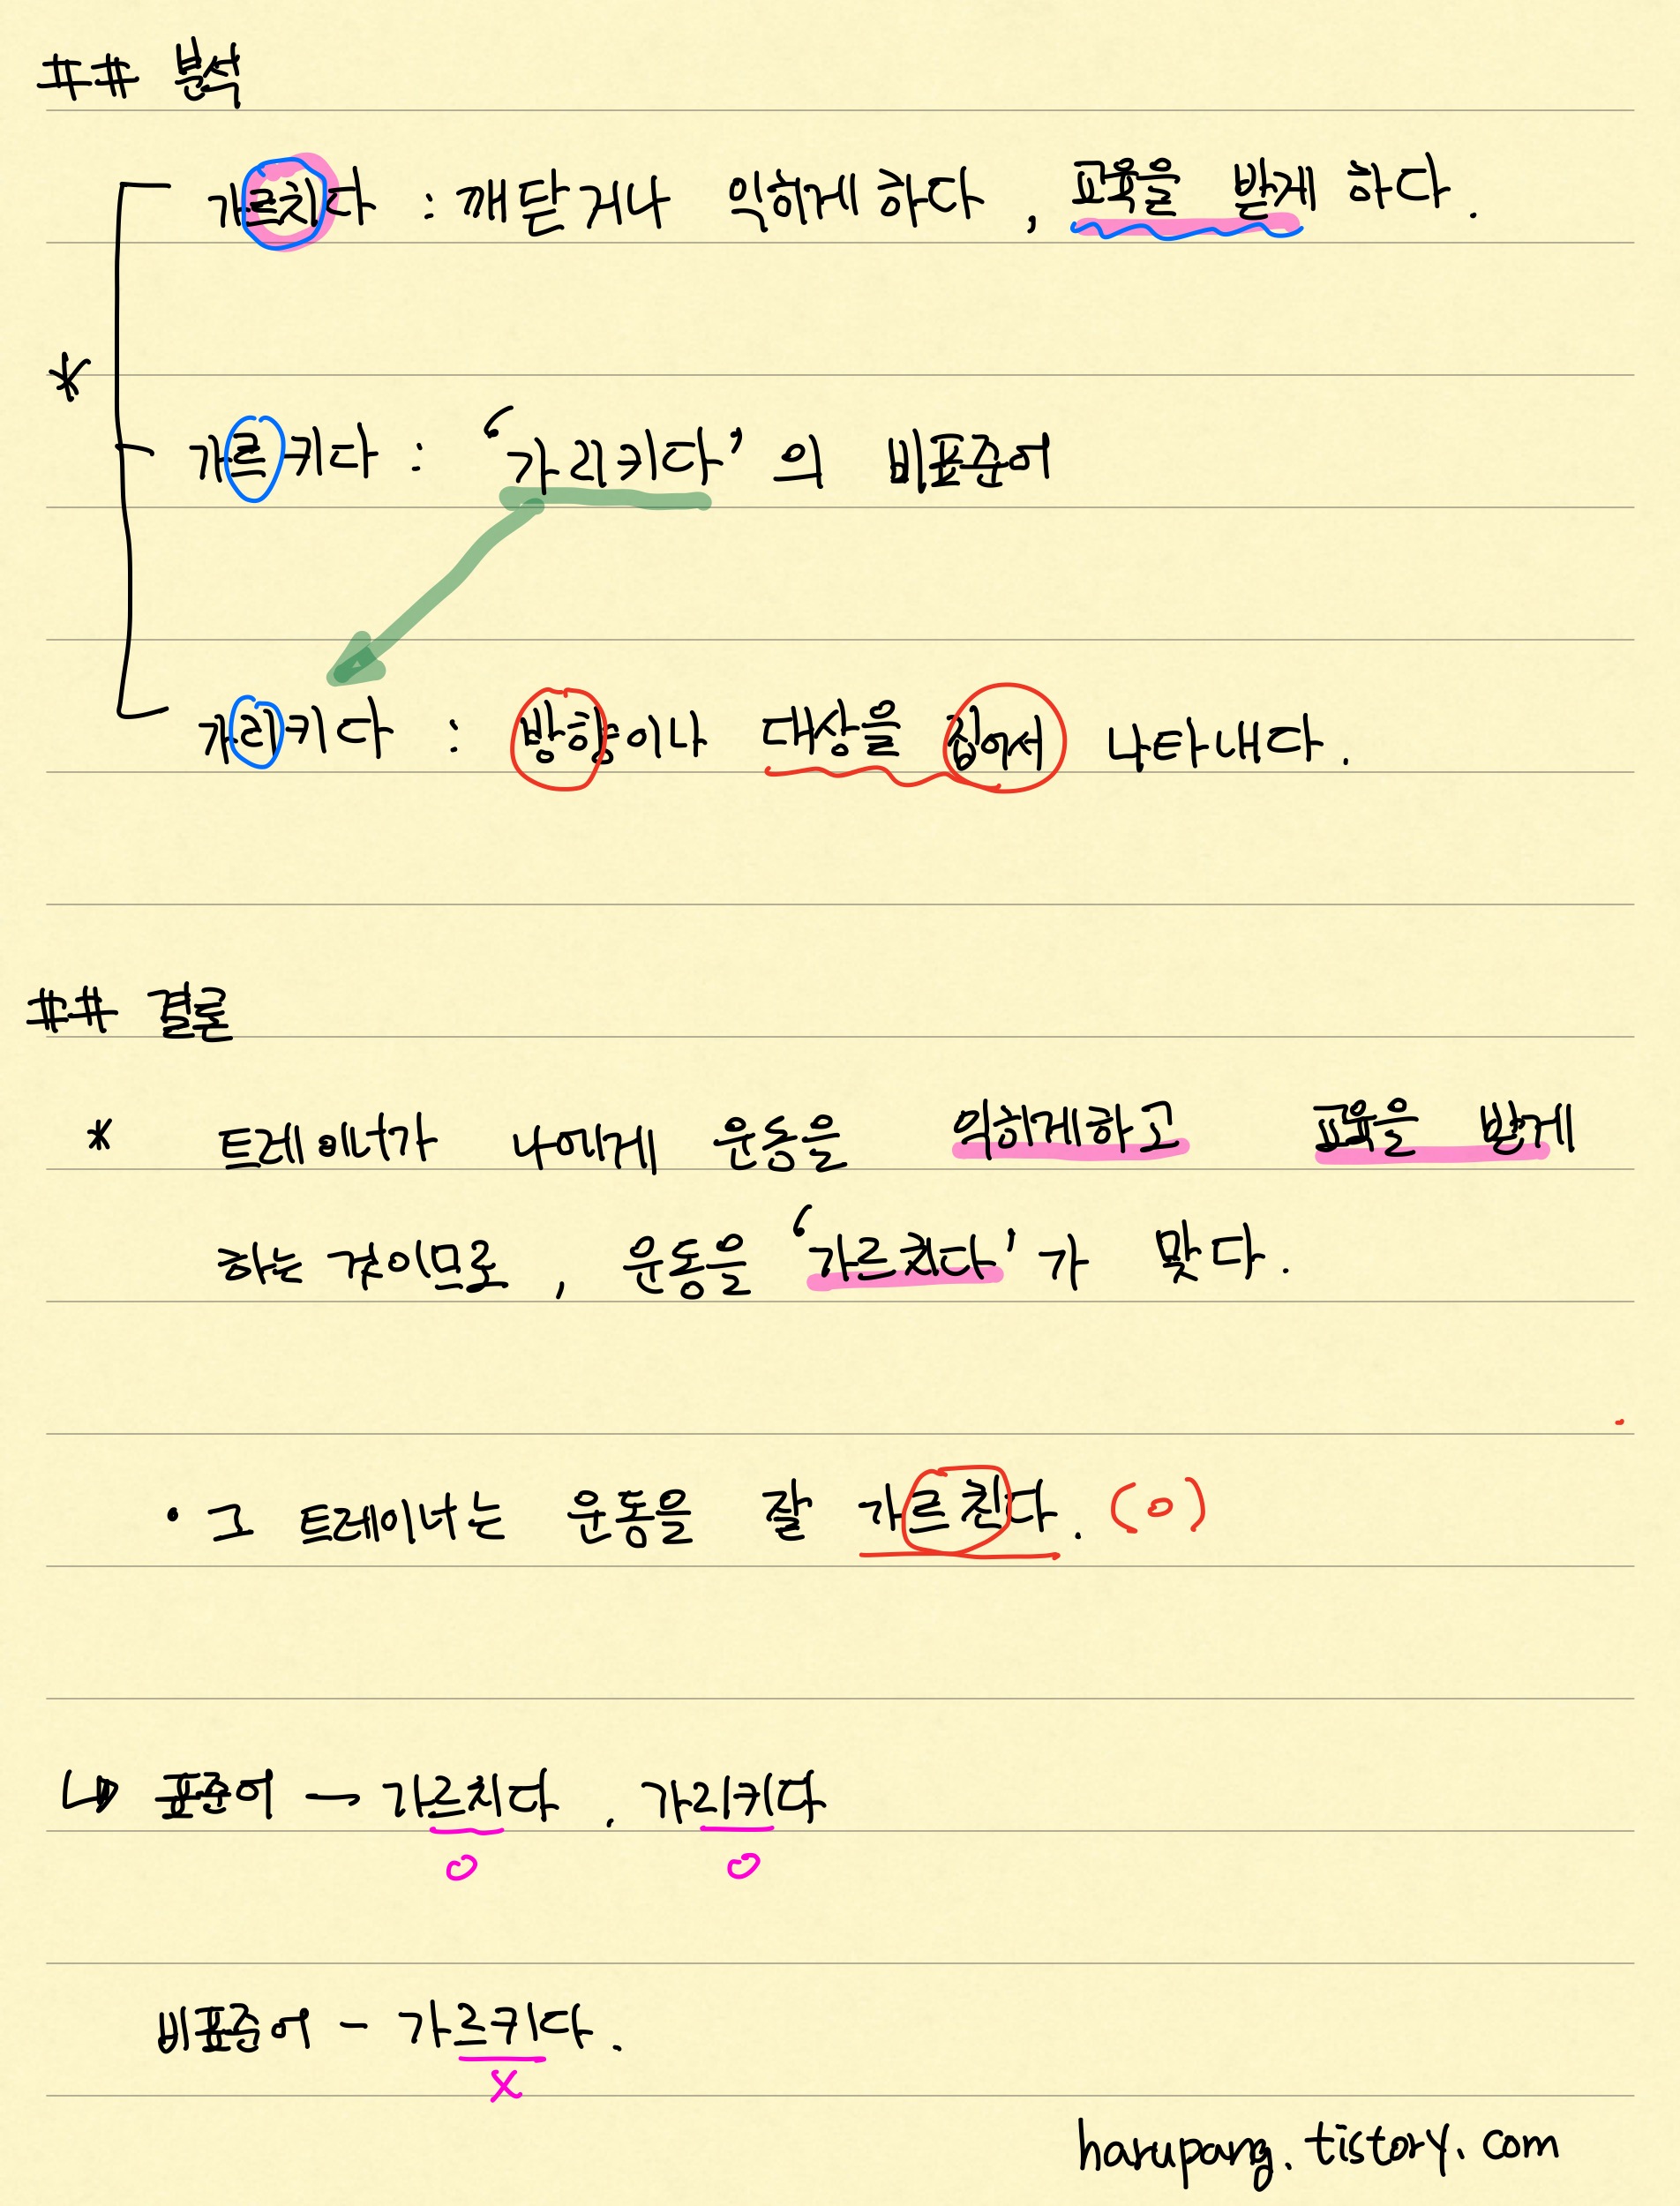 ## 분석
가르치다 : 깨닫거나 익히게 하다, 교육을 받게 하다.
*
가르키다 : '가리키다'의 비표준어
가리키다 : 방향이나 대상을 집어서 나타내다.
## 결론
* 트레이너가 나에게 운동을 익히게하고 교육을 받게
하는 것이므로, 운동을 '가르치다'가 맞다.
• 그 트레이너는 운동을 잘 가르친다. (o)
↳ 표준어 - 가르치다, 가리키다
o o
비표준어 - 가르키다.
x
harupang.tistory.com